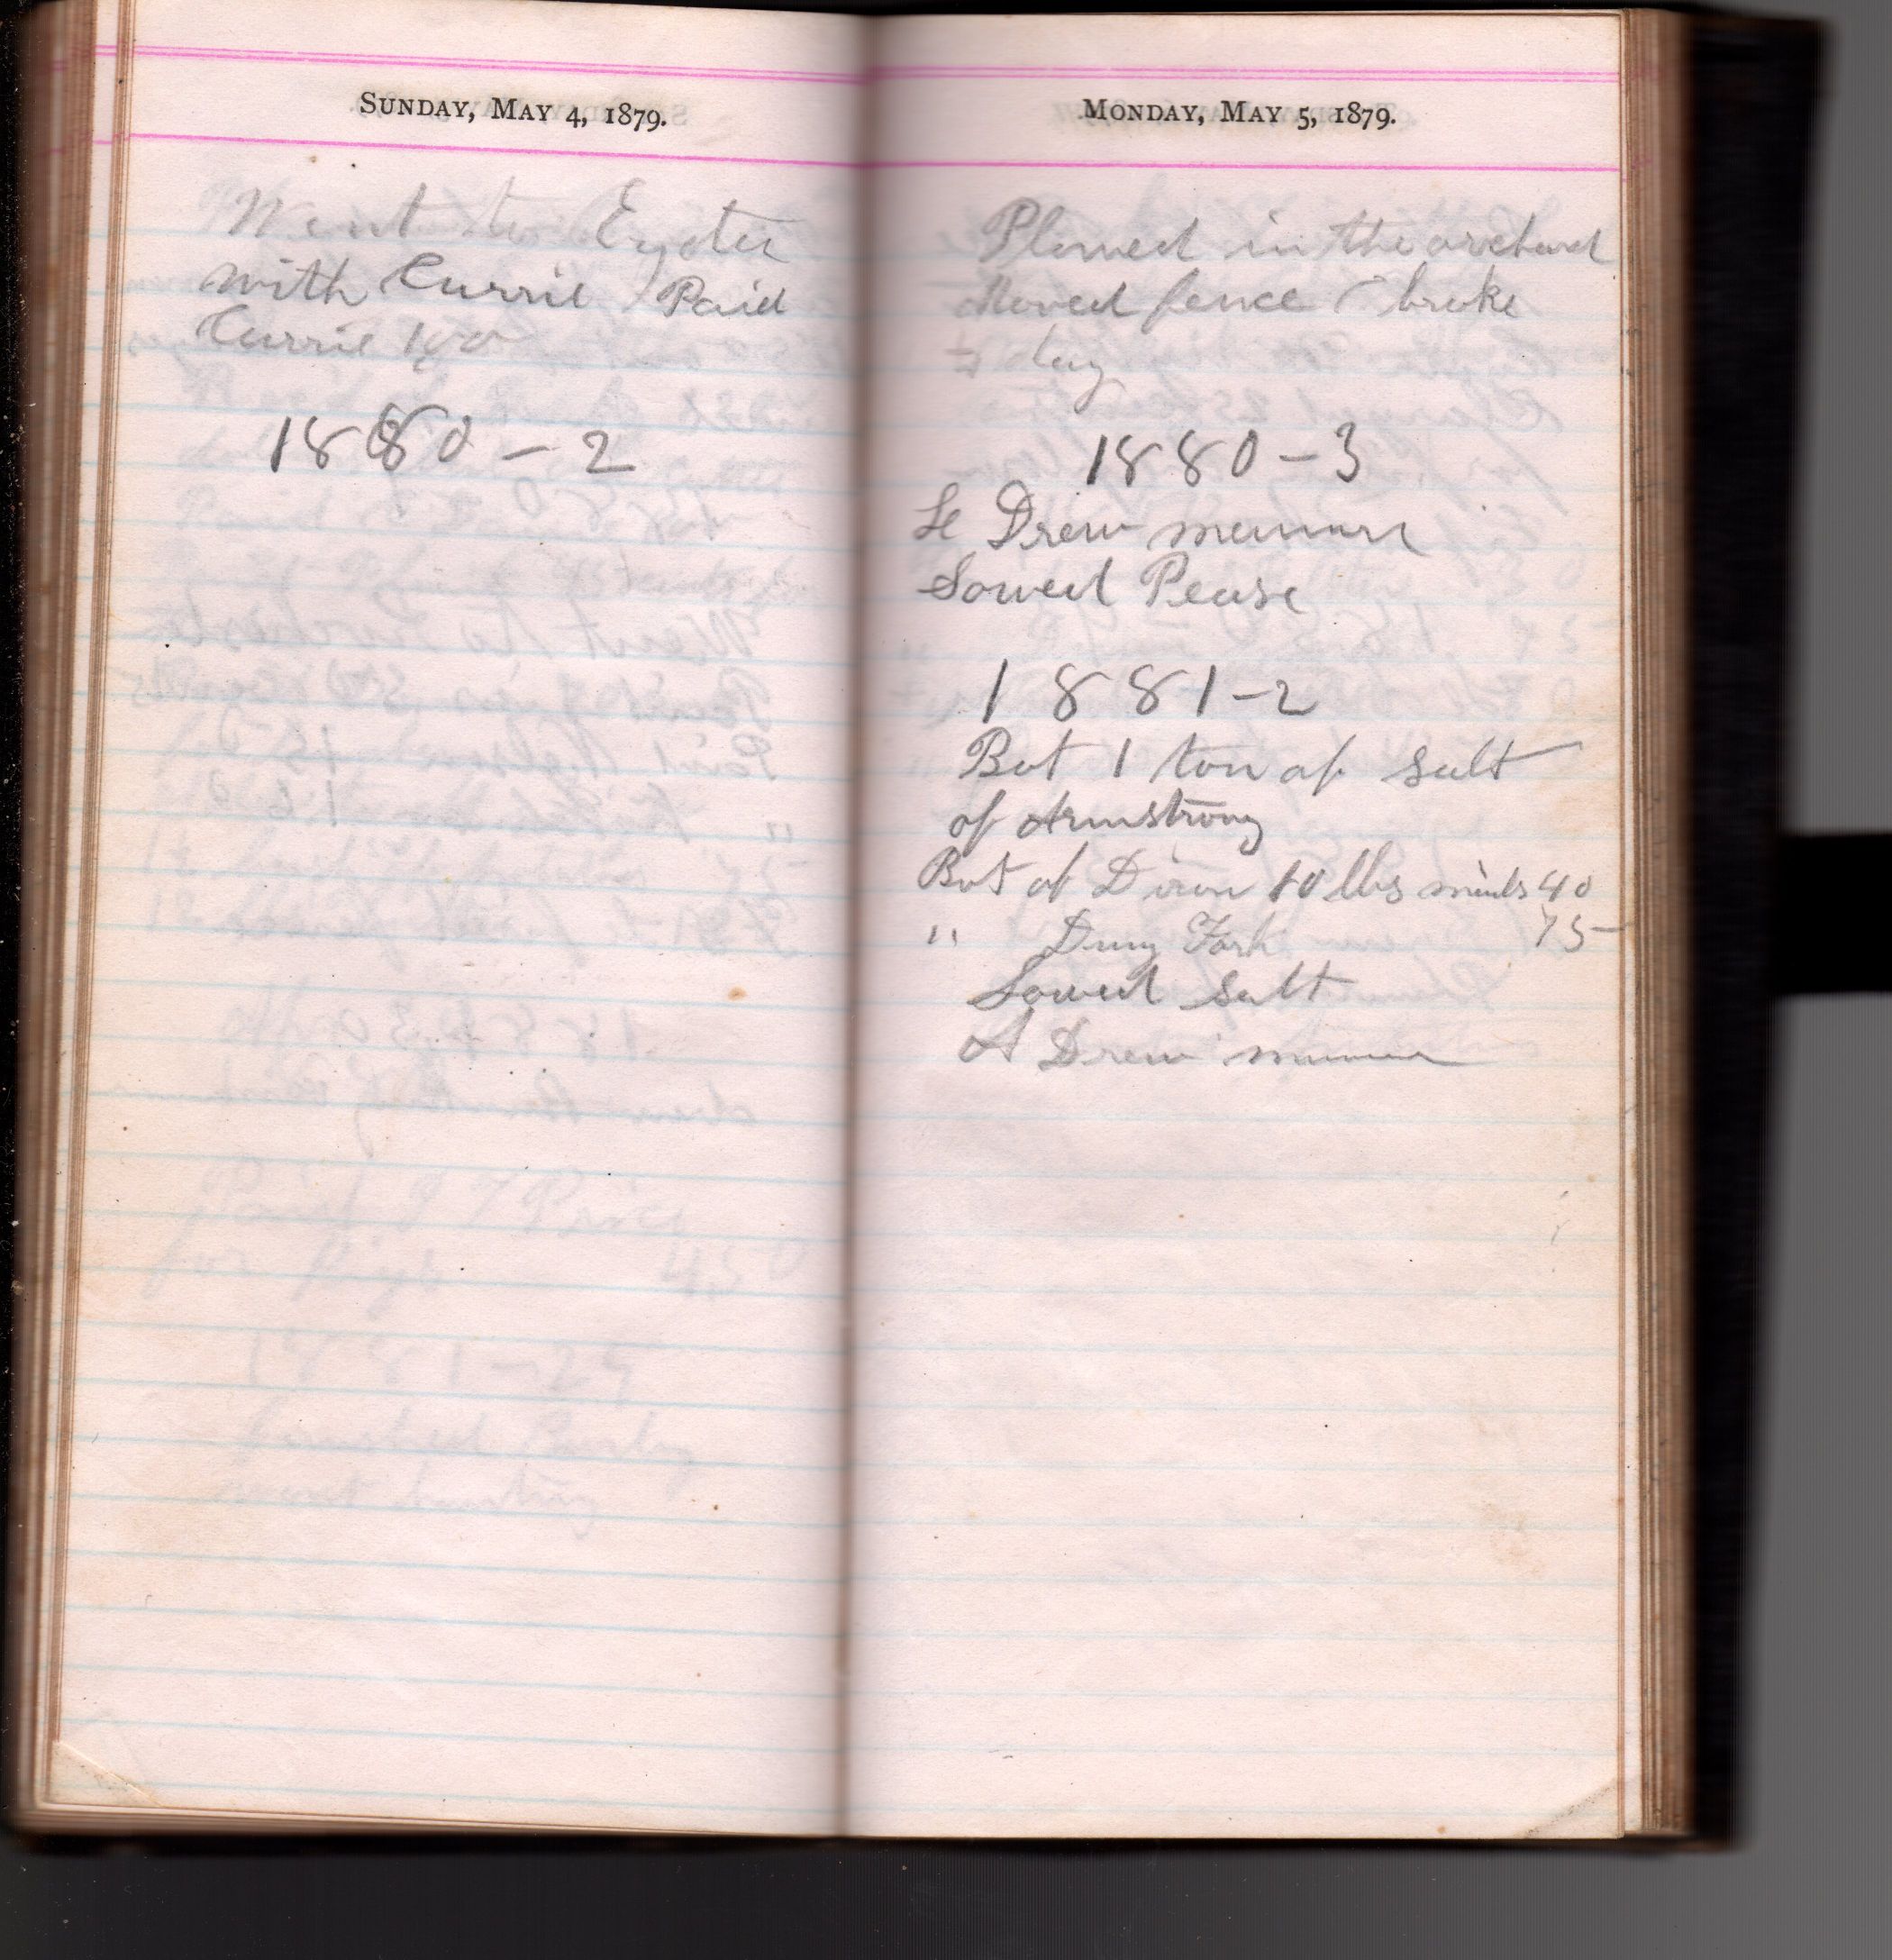 SUNDAY, MAY 4, 1879.
Went to
with Currie Paid
Currie 100
1880 - 2
MONDAY, MAY 5, 1879.
Plowed in the orchard
Moved fence broke
1880 - 3
Drew manure
Sowed Pease
1881 - 2
Bot 1 ton of salt
of Armstrong
Bot of Dixon 10 lbs nails 40
" Dung Fork 75
Sowed salt
A Drew manure